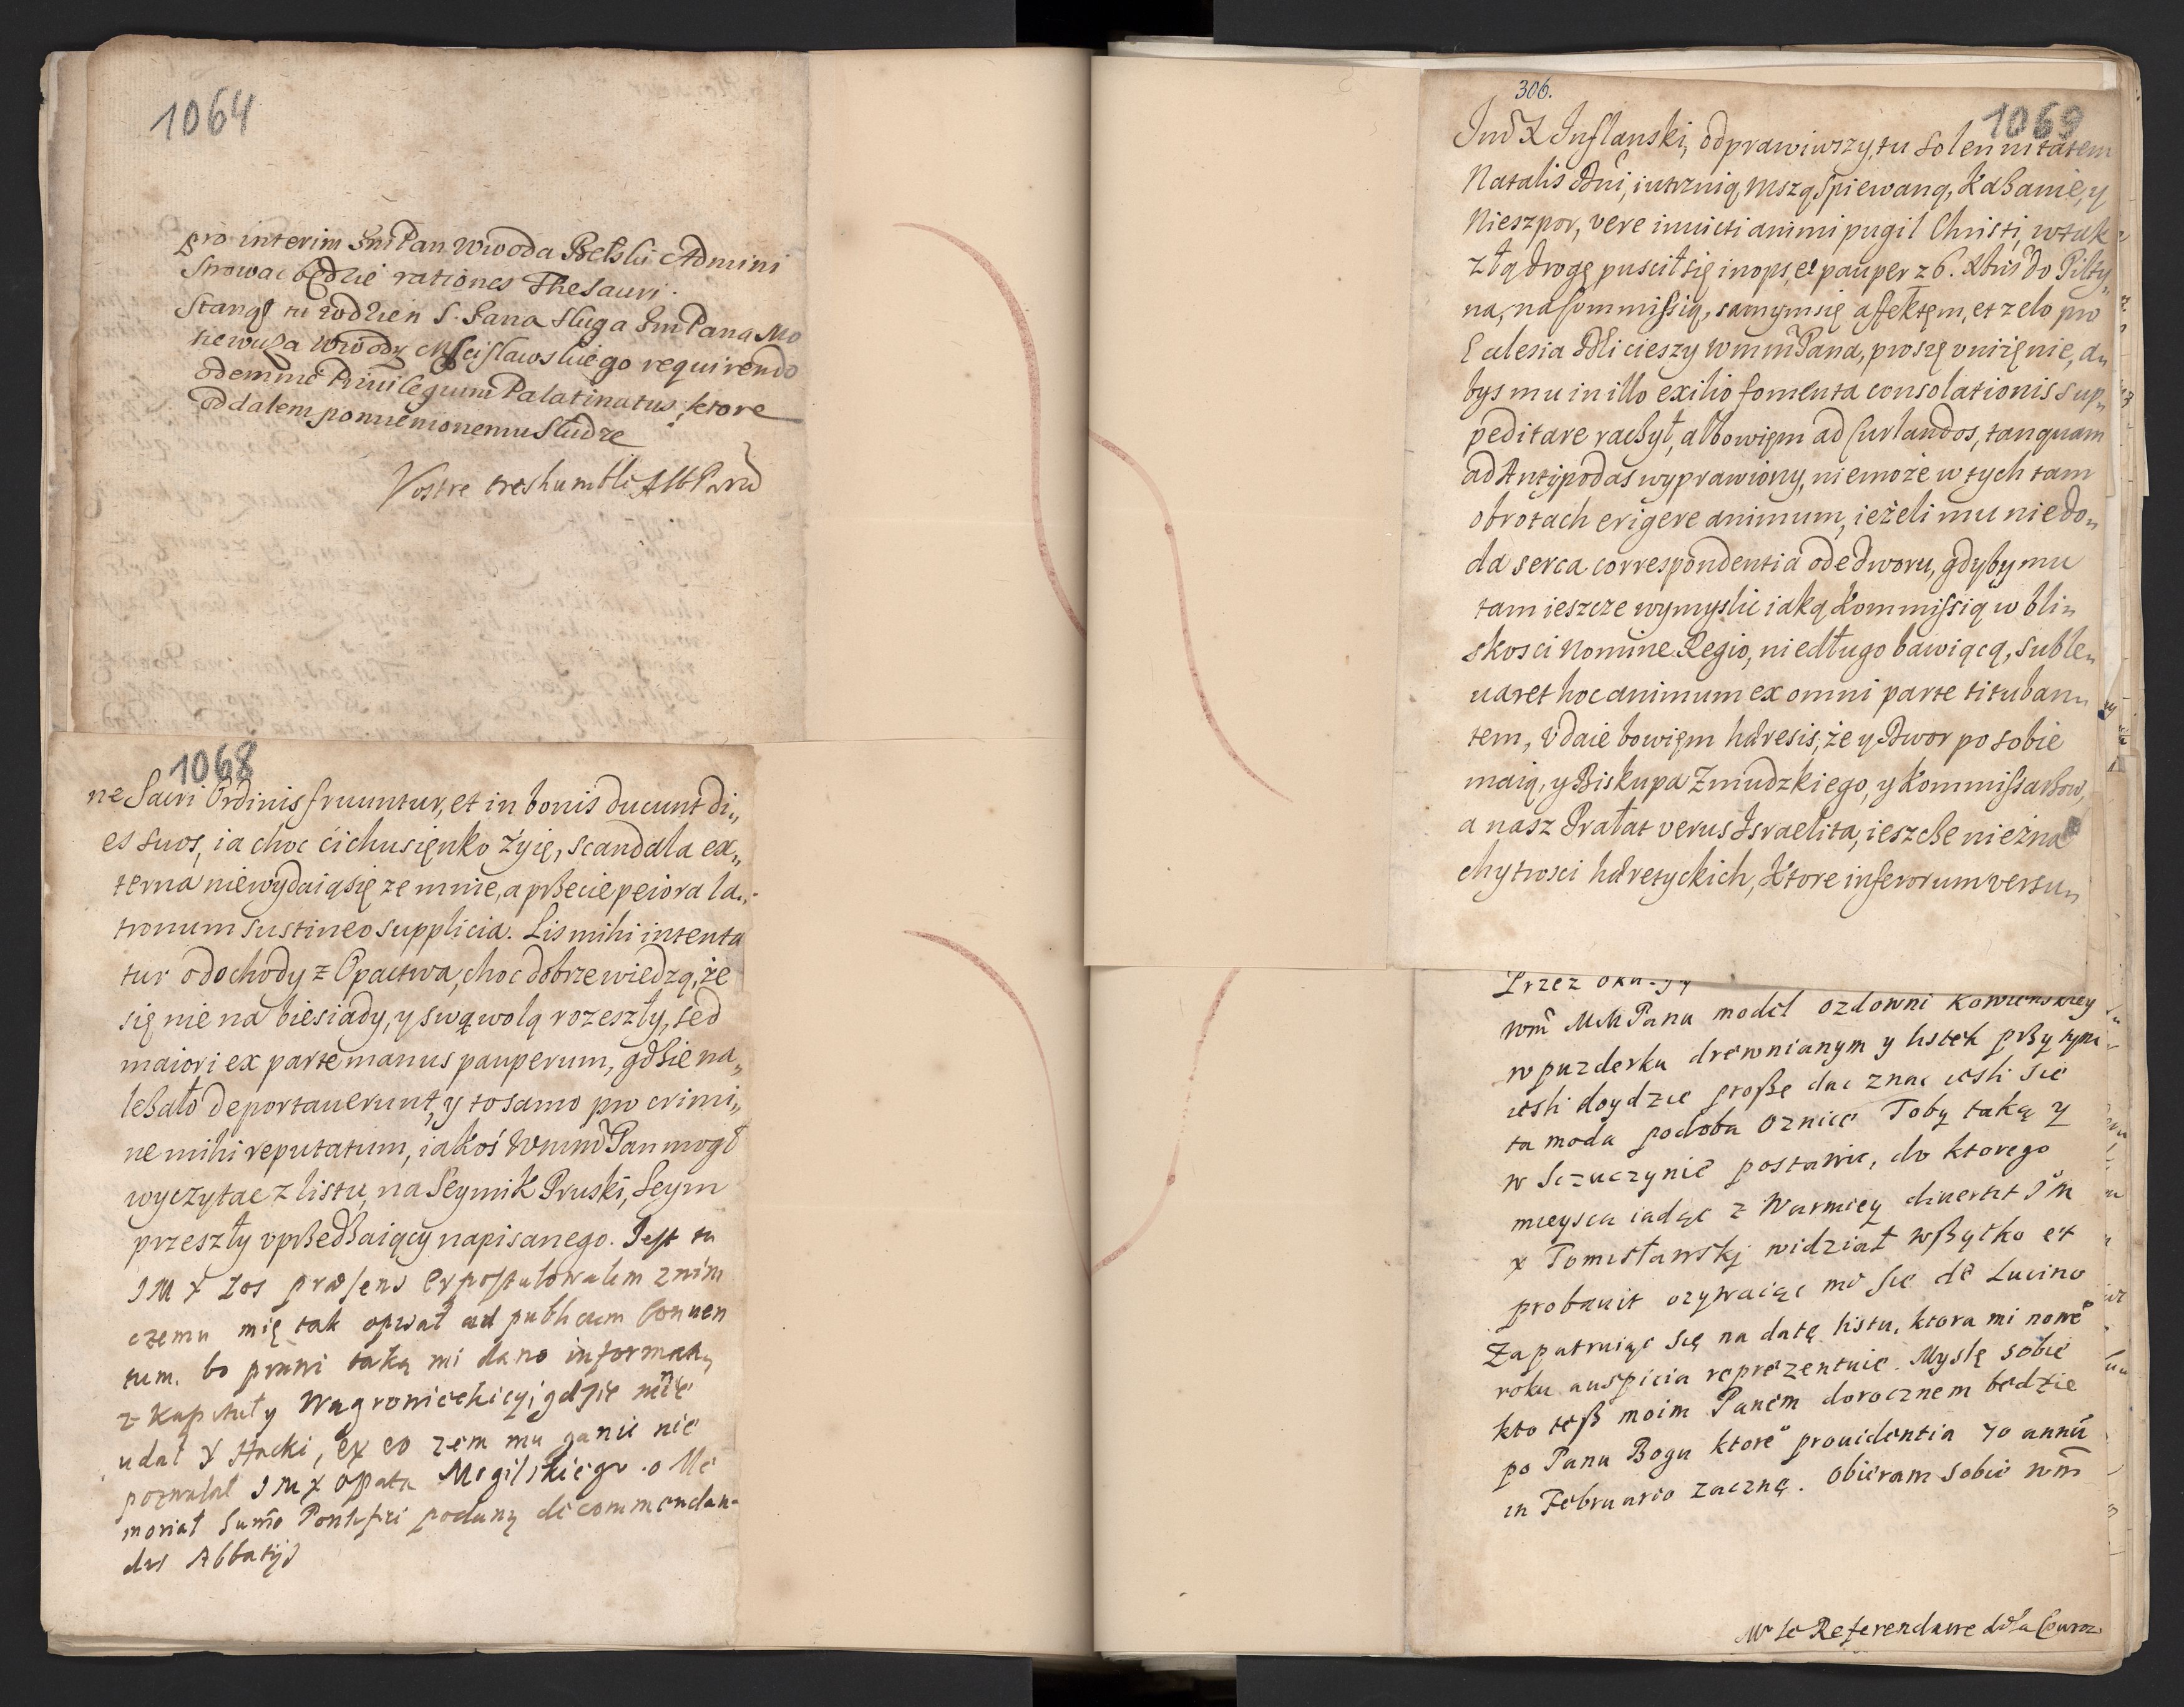 1064
pro interim JmPan Wwoda Bełski Admini
strowac będzie rationes Thesauri.
Stanął tu
sługa JmPana
Wwody Mscisławskiego requirendo
odemnie Priuilegium Palatinatus, ktore
oddałem pomienionemu Słudze
Vostre treshumble
1068
ne Sacri Ordinis fruuntur, et in bonis ducunt di„
es suos, ia choc cichusięnko żyię, scandala ex„
terna niewydaią się ze mnie, a przecie peiora la„
tronum sustineo supplicia. Lis mihi intenta
tur o dochody z Opactwa, choc dobrze wiedzą, że
się nie na biesiady, y swąwolą rozeszły, sed
maiori ex parte manus pauperum, gdzie na„
leżało deportauerunt, y to samo pro crimi„
ne mihi reputatum, iakoś WmmPan mogł
wyczytac z listu, na Seymik Pruski, Seym
przeszły vprzedzaiący napisanego. Jest tu
JM X Zos præsens Expostulowałem z nim
czemu mię tak opisał ad publicum Conuen
tum. bo prawi taką mi dano informac„
z Kapituły Wągrowieckiey, gdzie mie
udał X Hacki, ex eo zem mu ganić nie
pozwalał JM X Opata Mogilskiego o Me
moriał Summo Pontifici podany de commendan„
dis Abbatijs
306.
1069
Inflanski, odprawiwszy, tu solennitatem
Natalis Dni, iutrznią, mszą spiewaną, Kazanie, y
Nieszpor, vere inuicti animi pugil Christi, w tak
złą drogę puscił się inops, et pauper z 6. do Pilty„
na, na Commissią, samym się affektem, et zelo pro
Ecclesia Dei cieszy WmmPana, proszę vniżęnie, a„
bys mu in illo exilio fomenta consolationis sup„
peditare raczył, albowięm ad Curlandos, tanquam
ad Antipodas wyprawiony, niemoże w tych tam
obrotach erigere animum, ieżeli mu niedo„
da serca correspondentia ode dworu, gdyby mu
tam ieszcze wymyslic iaką Kommissią w bli„
skosci Nomine Regio, niedługo bawiącą, suble„
uaret hoc animum ex omni parte tituban„
tem, Vdaie bowięm hæresis, że y Dwor po sobie
maią, y Biskupa Zmudzkiego, y Kommissarzow,
a nasz Prałat verus Israelita, ieszcze niezna
chytrosci hæretyckich, Ktore inferorum versu„
Przez
wm MMPanu model ozdowni Kowienskiey
w puzderku drewnianym y listek przy tym
iesli doydzie prosze dac znac iesli sie
ta moda podoba oznice Toby taką y
w Sczuczynie postawic, do ktorego
mieysca iadąc z Warmiey diuertit JM
X Tomisławskj widział wszytko et
probauit ozywaiąc mi sie de Lucino
Zapatruiąc się na datę listu, ktora mi nowe
roku auspicia reprezentuie. Myslę sobie
kto tesz moim Panem dorocznem bedzie
po Panu Bogu ktore prouidentia 70 annu
in Februario zacznę. Obieram sobie wm
Mr le Referendaire de la Couron